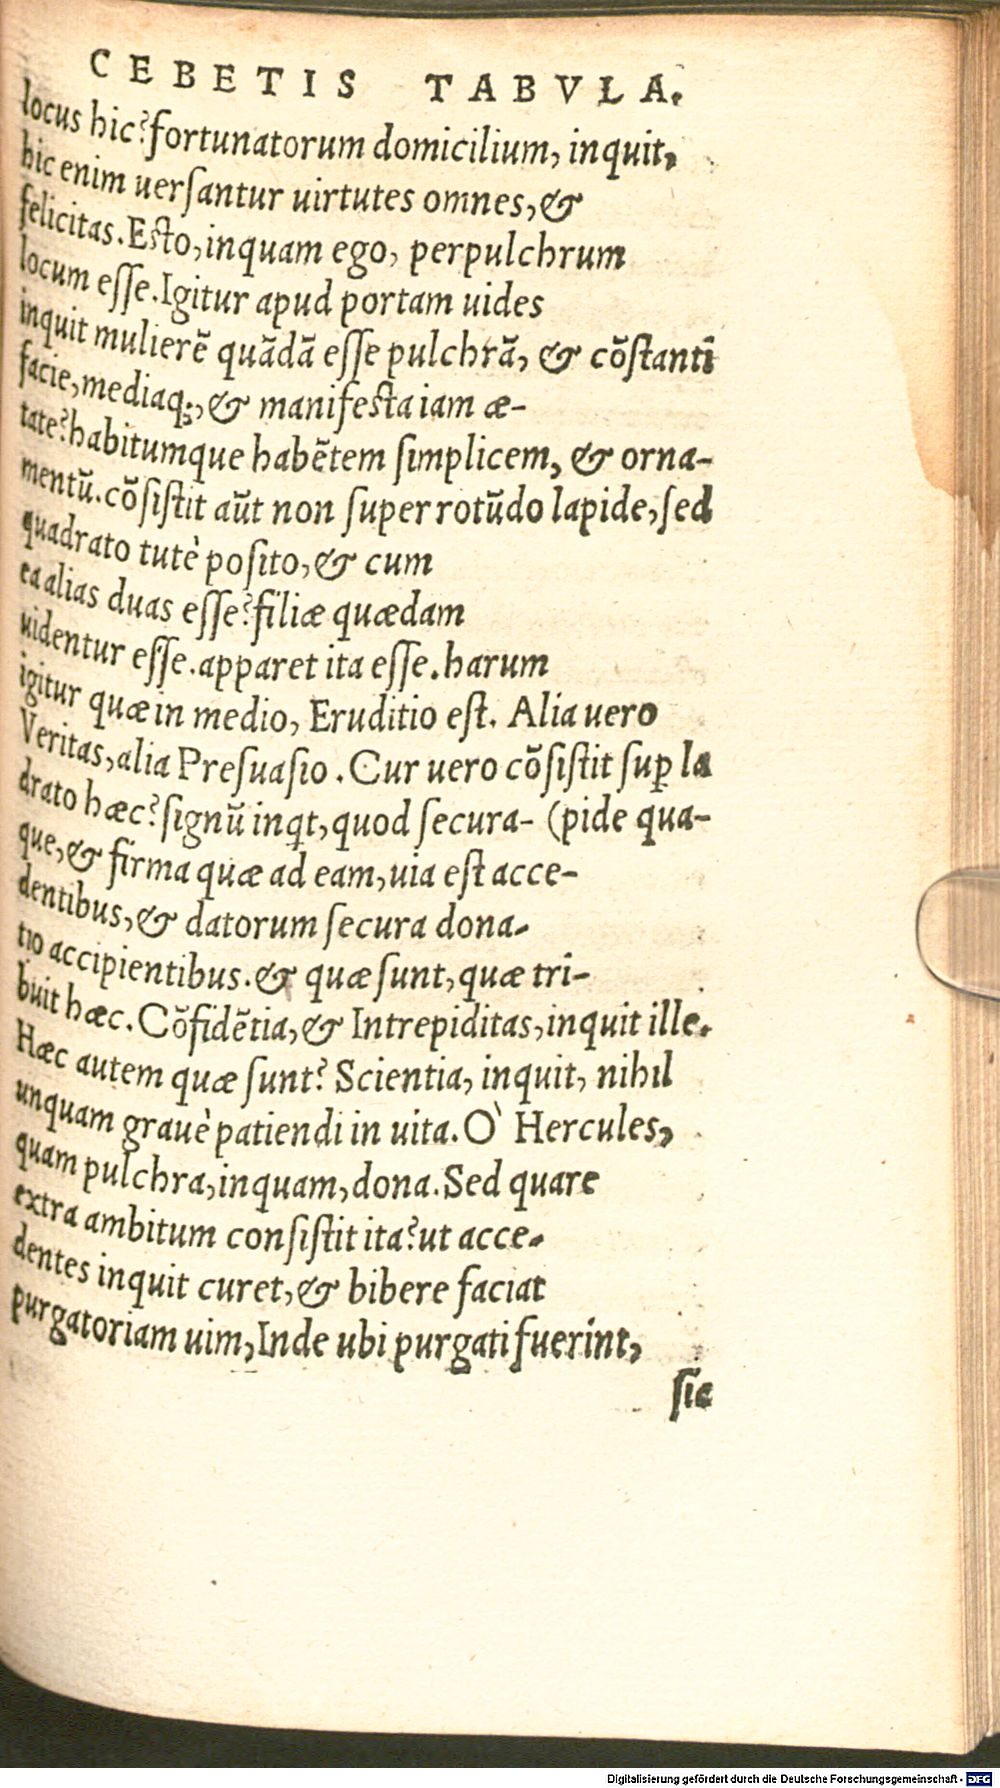 CEBETIS TABVLA.
locus hic? fortunatorum domicilium, inquit,
hic enim uersantur uirtutes omnes, &
felicitas. Esto, inquam ego, perpulchrum
locum esse. Igitur apud portam uides
inquit mulierẽ quãdã esse pulchrã, & cõstanti
facie, mediaq;, & manifesta iam æ-
tate? habitumque habẽtem simplicem, & orna-
mentũ. cõsistit aũt non super rotũdo lapide, sed
quadrato tutè posito, & cum
ea alias duas esse? filiæ quædam
uidentur esse. apparet ita esse. harum
igitur quæ in medio, Eruditio est. Alia uero
Veritas, alia Presuasio. Cur uero cõsistit suꝑ la
drato hæc? signũ inqt, quod secura- (pide qua-
que, & firma quæ ad eam, uia est acce-
dentibus, & datorum secura dona-
tio accipientibus. & quæ sunt, quæ tri-
buit hæc. Cõfidẽtia, & Intrepiditas, inquit ille.
Hæc autem quæ sunt? Scientia, inquit, nihil
unquam grauè patiendi in uita. O` Hercules,
quam pulchra, inquam, dona. Sed quare
extra ambitum consistit ita? ut acce-
dentes inquit curet, & bibere faciat
purgatoriam uim, Inde ubi purgati fuerint,
sic
Digitalisierung gefördert durch die Deutsche Forschungsgemeinschaft - DFG